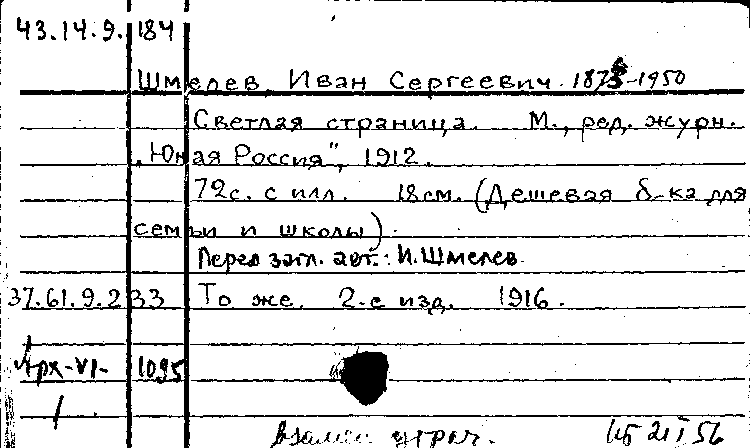 43.14.9. 184
Шмелев, Иван Сергеевич. 1873-1950
Светлая страница. М., ред. журн.
„Юная Россия", 1912.
72с. с илл. 18см. (Дешевая б-ка для
семьи и школы)
Перед загл. авт.: И. Шмелев.
37.61.9.233 То же. 2-е изд. 1916.
Арх-VI- 1095
1
взамен утрач. 21 I 56